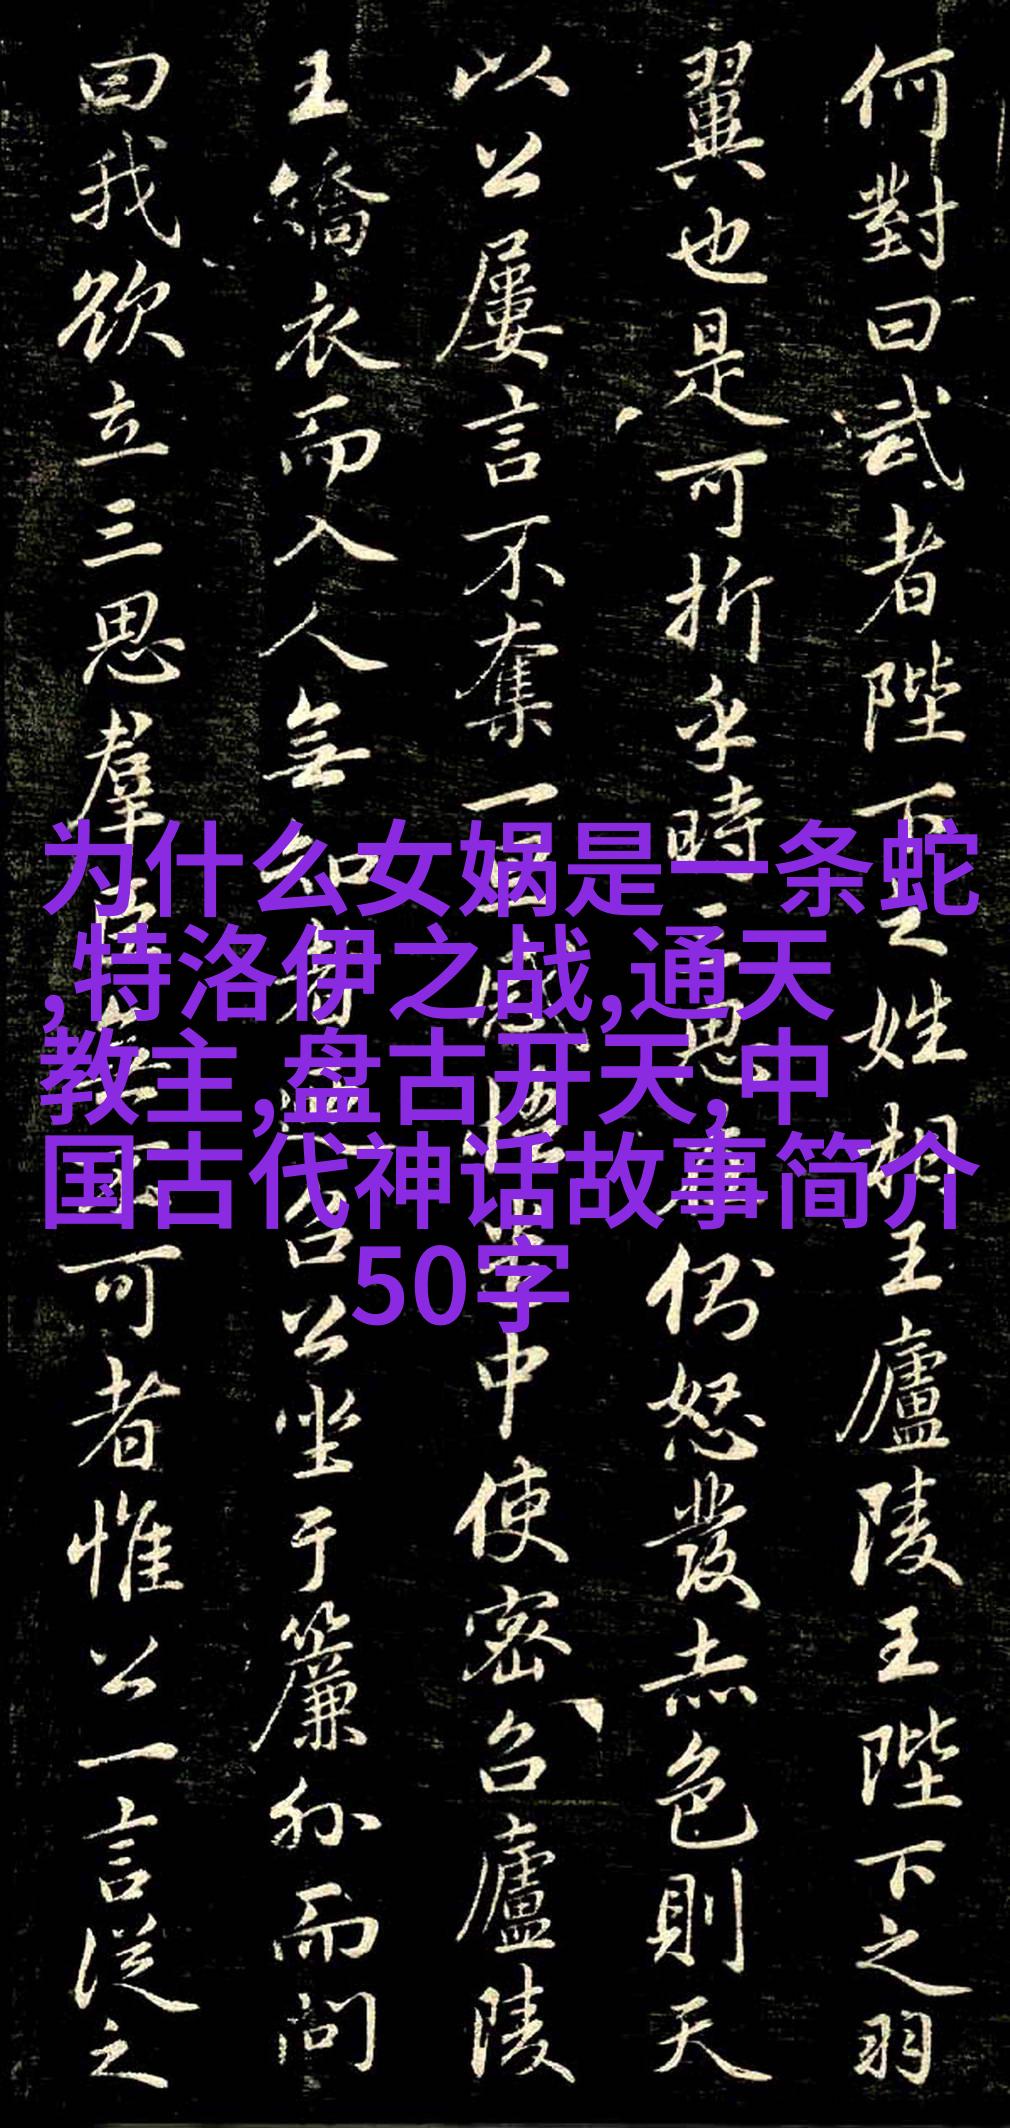 何對曰武者陛下之姓相王廬陵王陛下之羽
翼也是可折乎時三思在側怒發赤色則天
以公屢言不奪一旦感悟
中使密召廬陵
王矯衣而入人無知者
召公坐于簾外而問
曰我欲立三思群臣無不可者惟公一言從之
为什么女娲是一条蛇
,特洛伊之战,通天
教主,盘古开天,中
国古代神话故事简介
50字